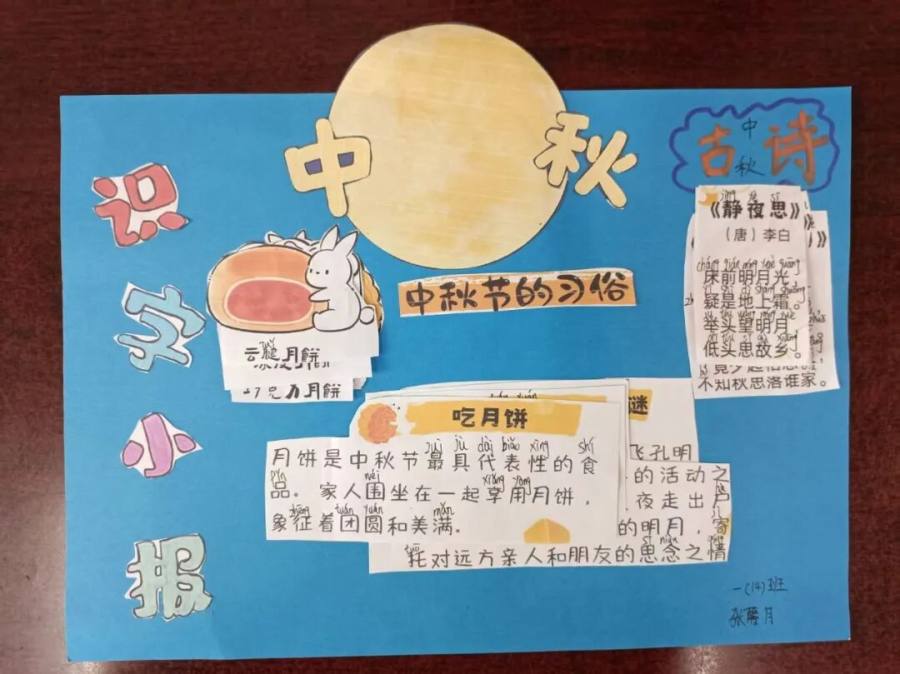 中秋
识字小报
古诗
中秋
《静夜思》
（唐）李白
床前明月光，
疑是地上霜。
举头望明月，
低头思故乡。
不知秋思落谁家。
中秋节的习俗
云腿月饼
巧克力月饼
吃月饼
月饼是中秋节最具代表性的食
品。家人围坐在一起享用月饼，
象征着团圆和美满。
谜
飞孔明
的活动之
夜走出户
的明月，寄
托对远方亲人和朋友的思念之情
一(14)班